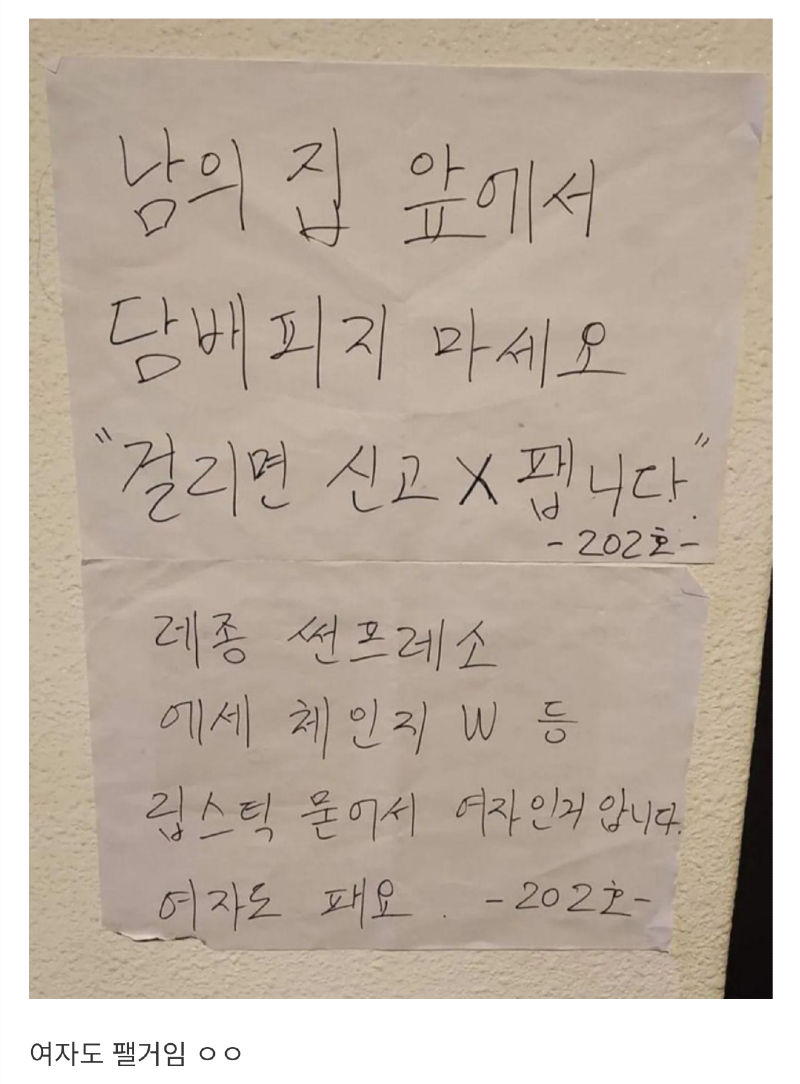 남의 집 앞에서
담배피지 마세요
"걸리면 신고 X 팹니다."
-202호-
레종 썬프레소
에세 체인지 W 등
립스틱 묻어서 여자인거 압니다.
여자도 패요. -202호-
여자도 팰거임 ㅇㅇ